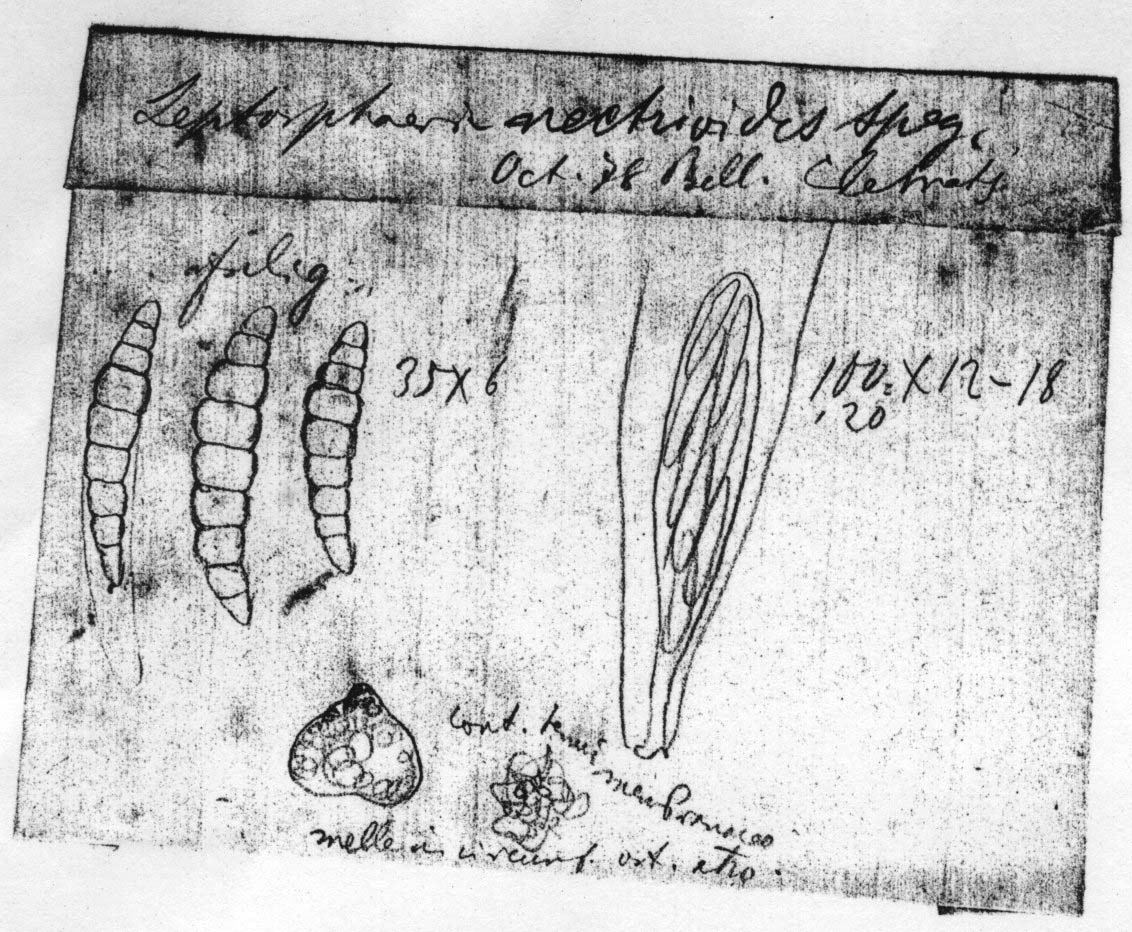 Leptosphaeria nectrioides Speg.
Oct. 78 Bell. Clematis
fulig.
35 X 6
100= X 12-18
120
cont. tenui membranaceo
melleis circumf. ost. atro.